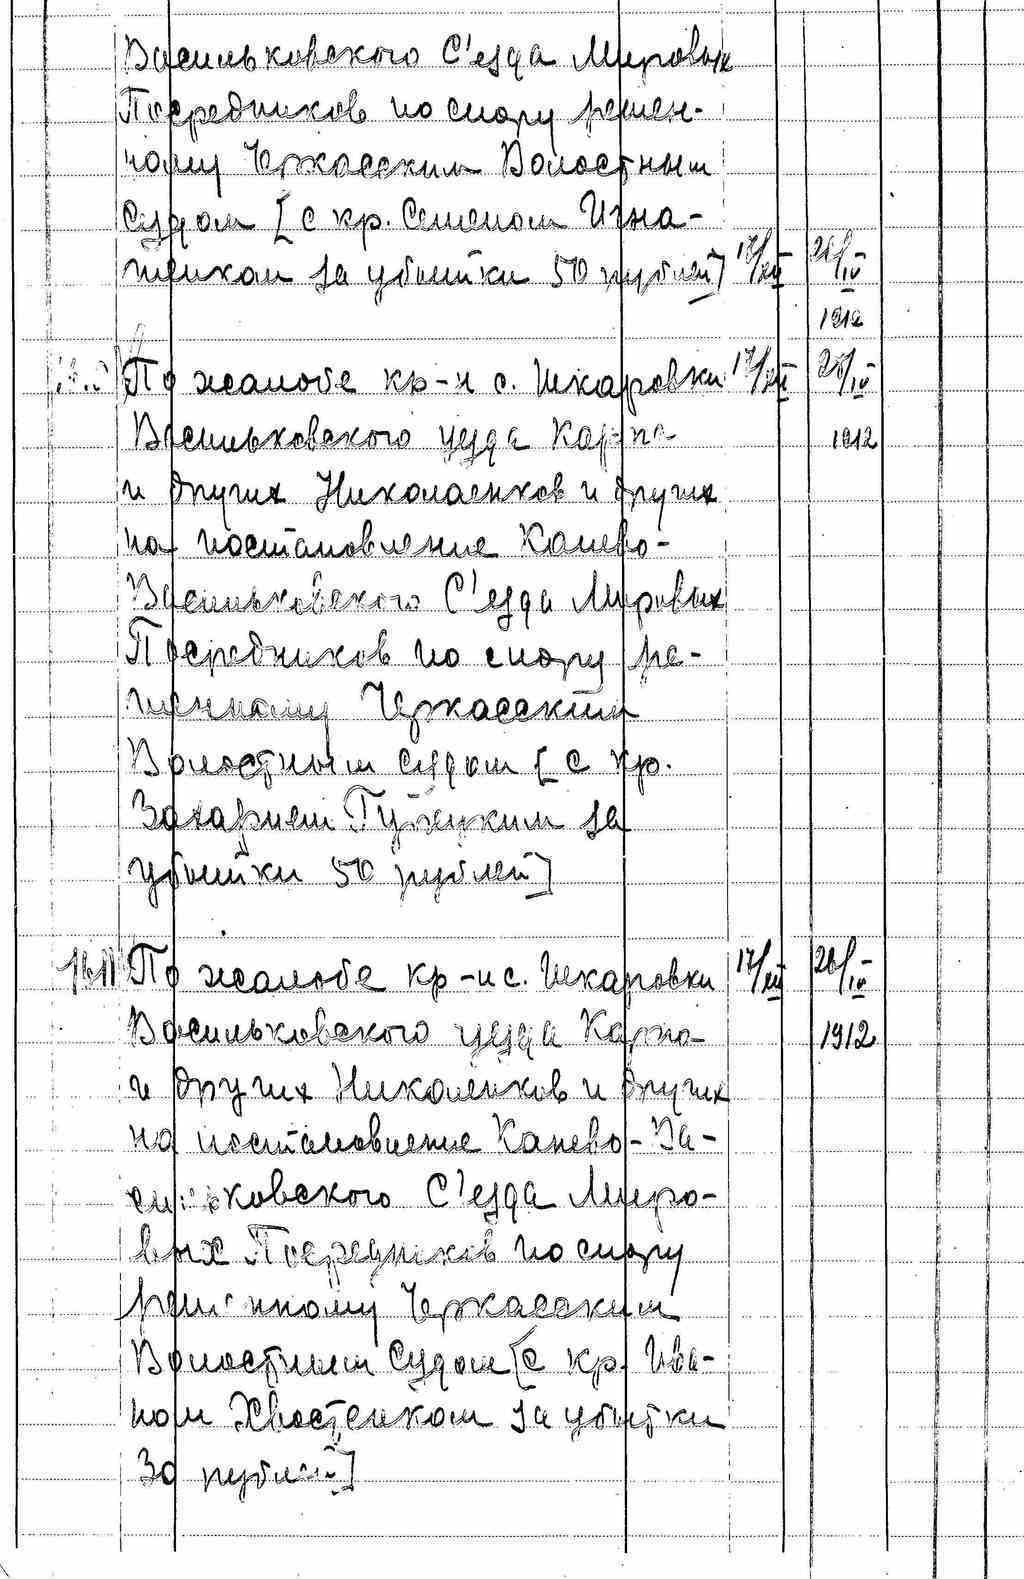 Васильковского С'езда Мировых
Посредников по спору решен-
ному Черкасским Волостным
Судом [с кр. Семеном Игна-
тенком за убытки 50 рублей] 17/XII 26/IV
1912
По жалобе кр-н с. Шкаровки 17/XII 26/IV
Васильковского уезда Карпа 1912
и других Николаенков и других
на постановление Канево-
Васильковского С'езда Мировых
Посредников по спору ре-
шенному Черкасским
Волостным Судом [с кр.
Захарием за
убытки 50 рублей]
1611 По жалобе кр-н с. Шкаровки 17/XII 26/IV
Васильковского уезда Карпа 1912
и других Николенков и других
на постановление Канево-Ва-
сильковского С'езда Миро-
вых Посредников по спору
решенному Черкасским
Волостным Судом [с кр. Ива-
ном Хвостенком за убытки
30 рублей]